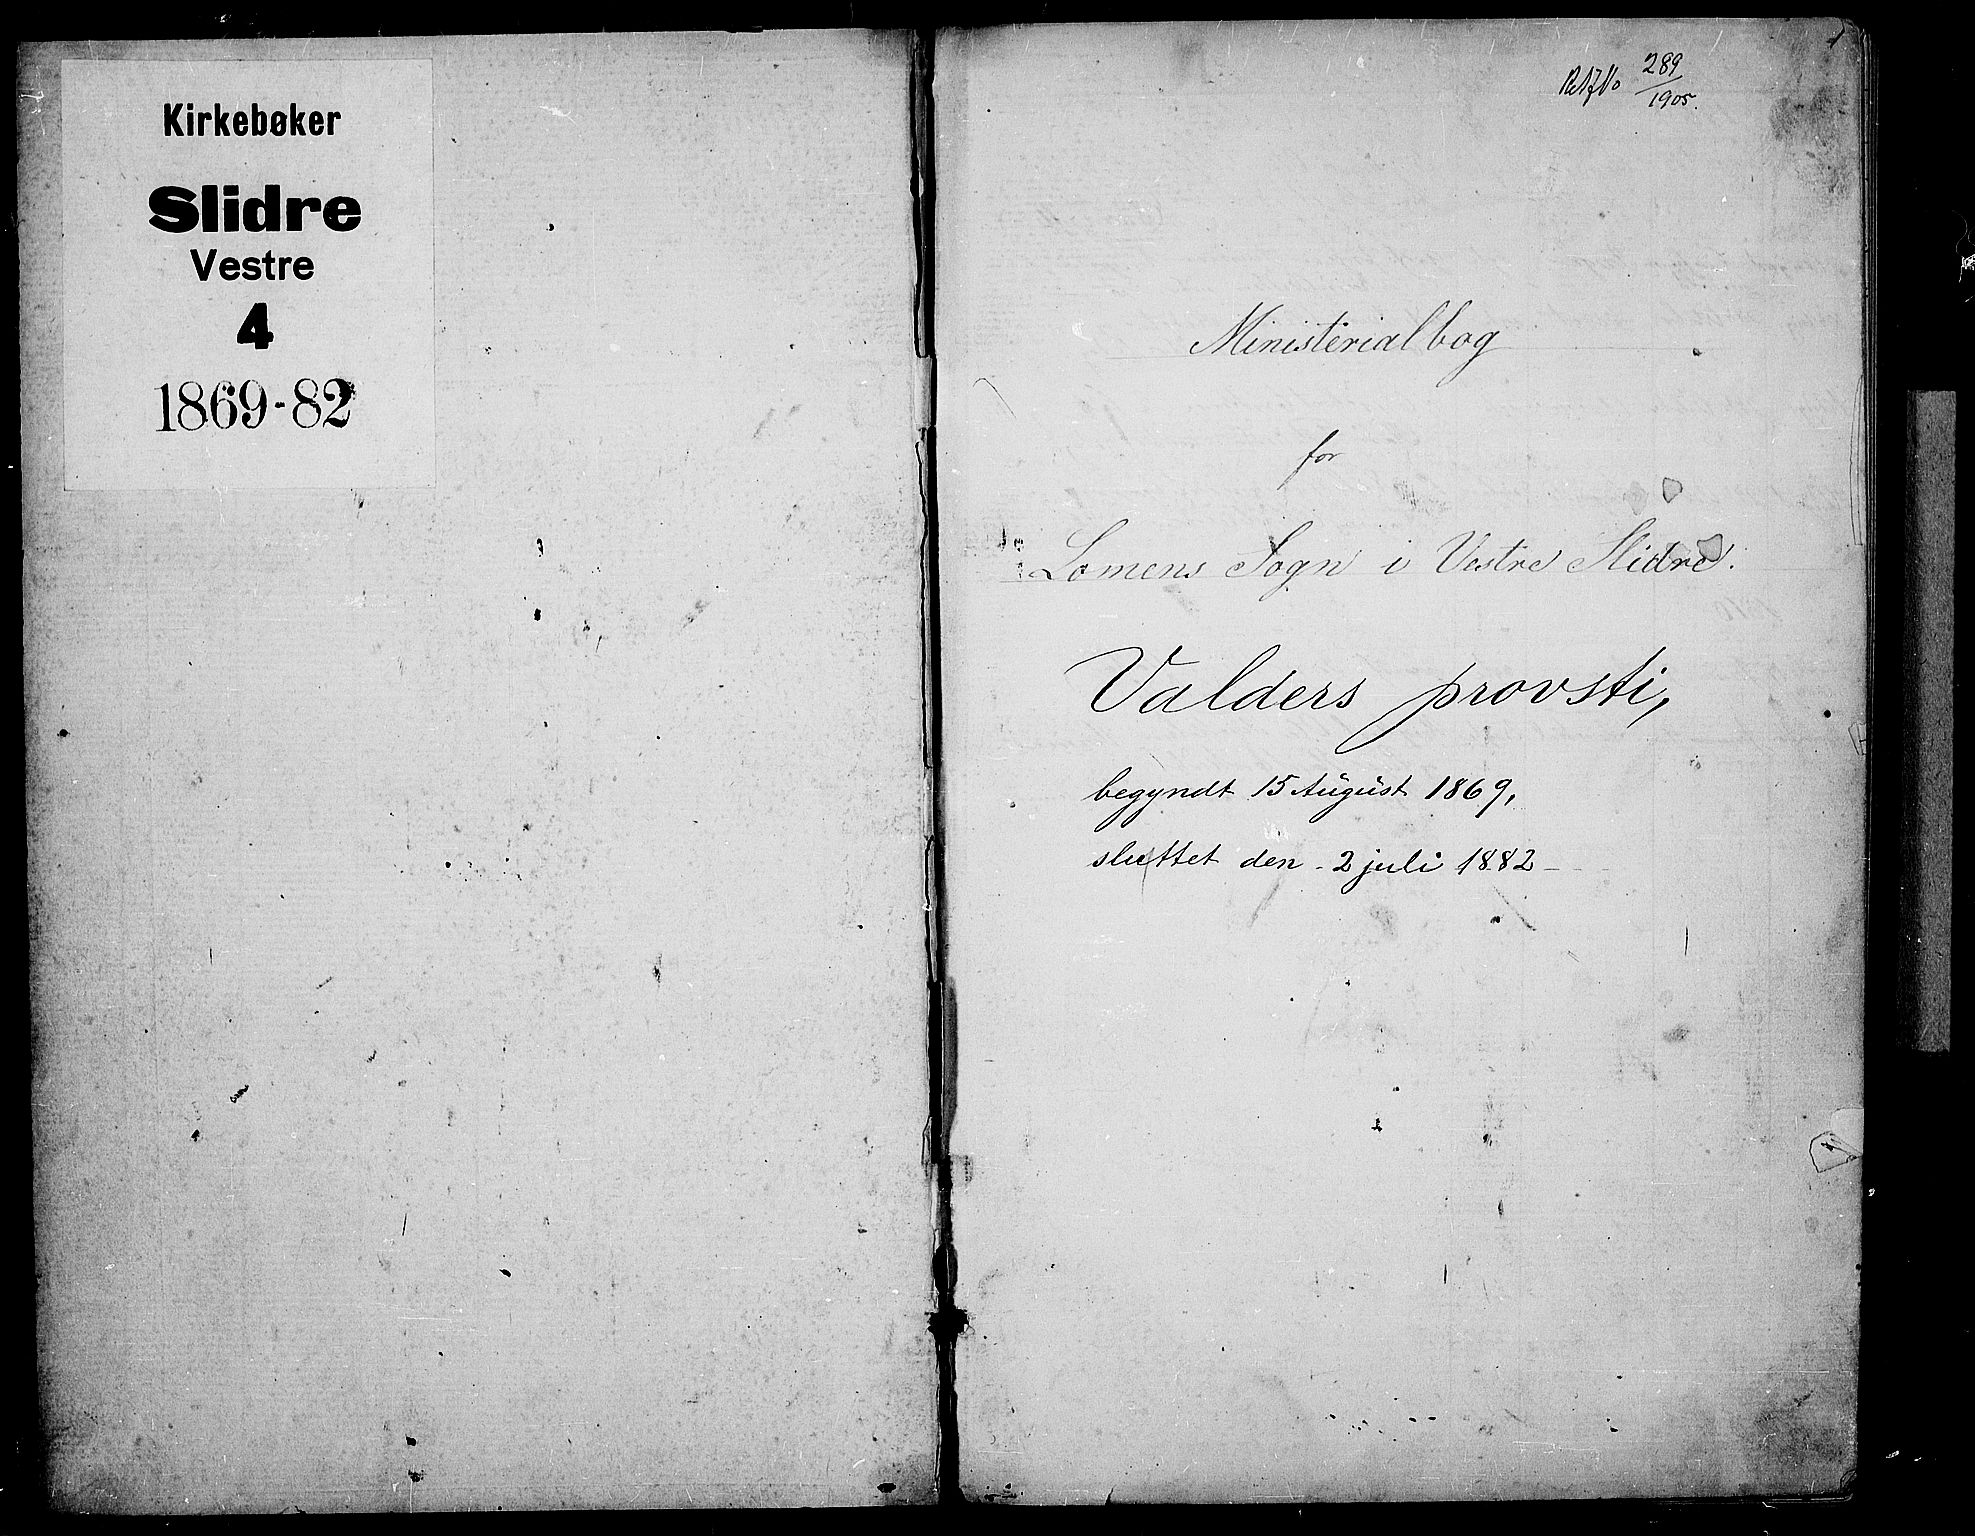 Kirkebøker
Slidre
Vestre
4
1869-82
289
1905.
Ministerialbog
for
Lomens Sogn i Vestre Slidre.
Valders provsti,
begyndt 15 August 1869,
sluttet den 2 juli 1882